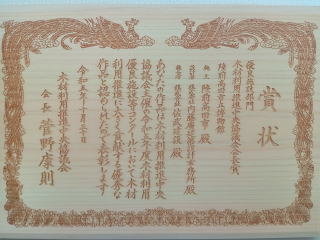 賞状
優良施設部門
木材利用推進中央協議会会長賞
陸前高田市立博物館
施主 陸前高田市 殿
設計者 株式会社内藤廣建築設計事務所 殿
施工者 株式会社佐武建設 殿
あなたの作品は木材利用推進中央
協議会主催令和五年度木材利用
優良施設等コンクールにおいて木材
利用推進に大きく貢献する優秀な
作品と認められたので表彰します
令和五年十月三十日
木材利用推進中央協議会
会長 菅野康則